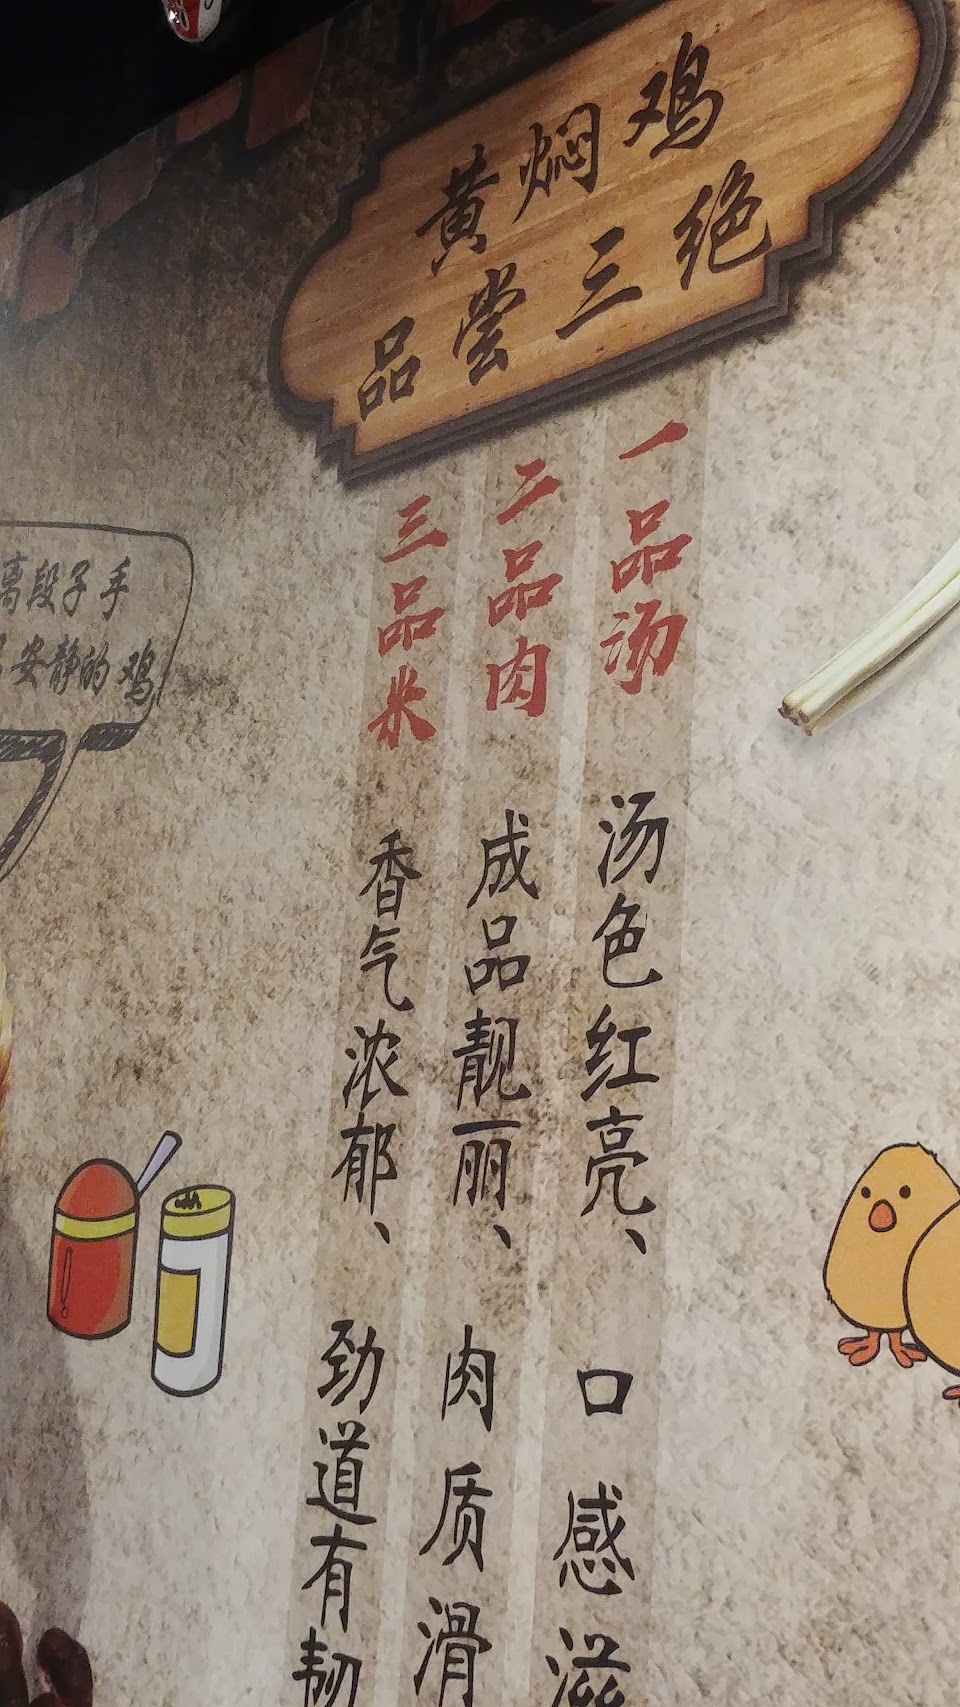 黄焖鸡
品尝三绝
一品汤 汤色红亮、口感滋
二品肉 成品靓丽、肉质滑
三品米 香气浓郁、劲道有韧
高段子手
安静的鸡